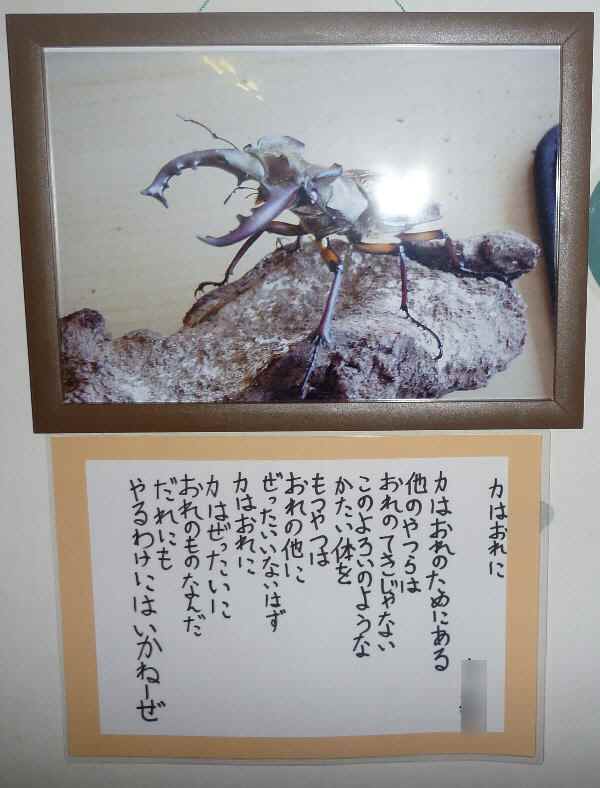 力はおれに
力はおれのためにある
他のやつらは
おれのてきじゃない
このよろいのような
かたい体を
もつやつは
おれの他に
ぜったいいないはず
力はおれに
力はぜったいに
おれのものなんだ
だれにも
やるわけにはいかねーぜ